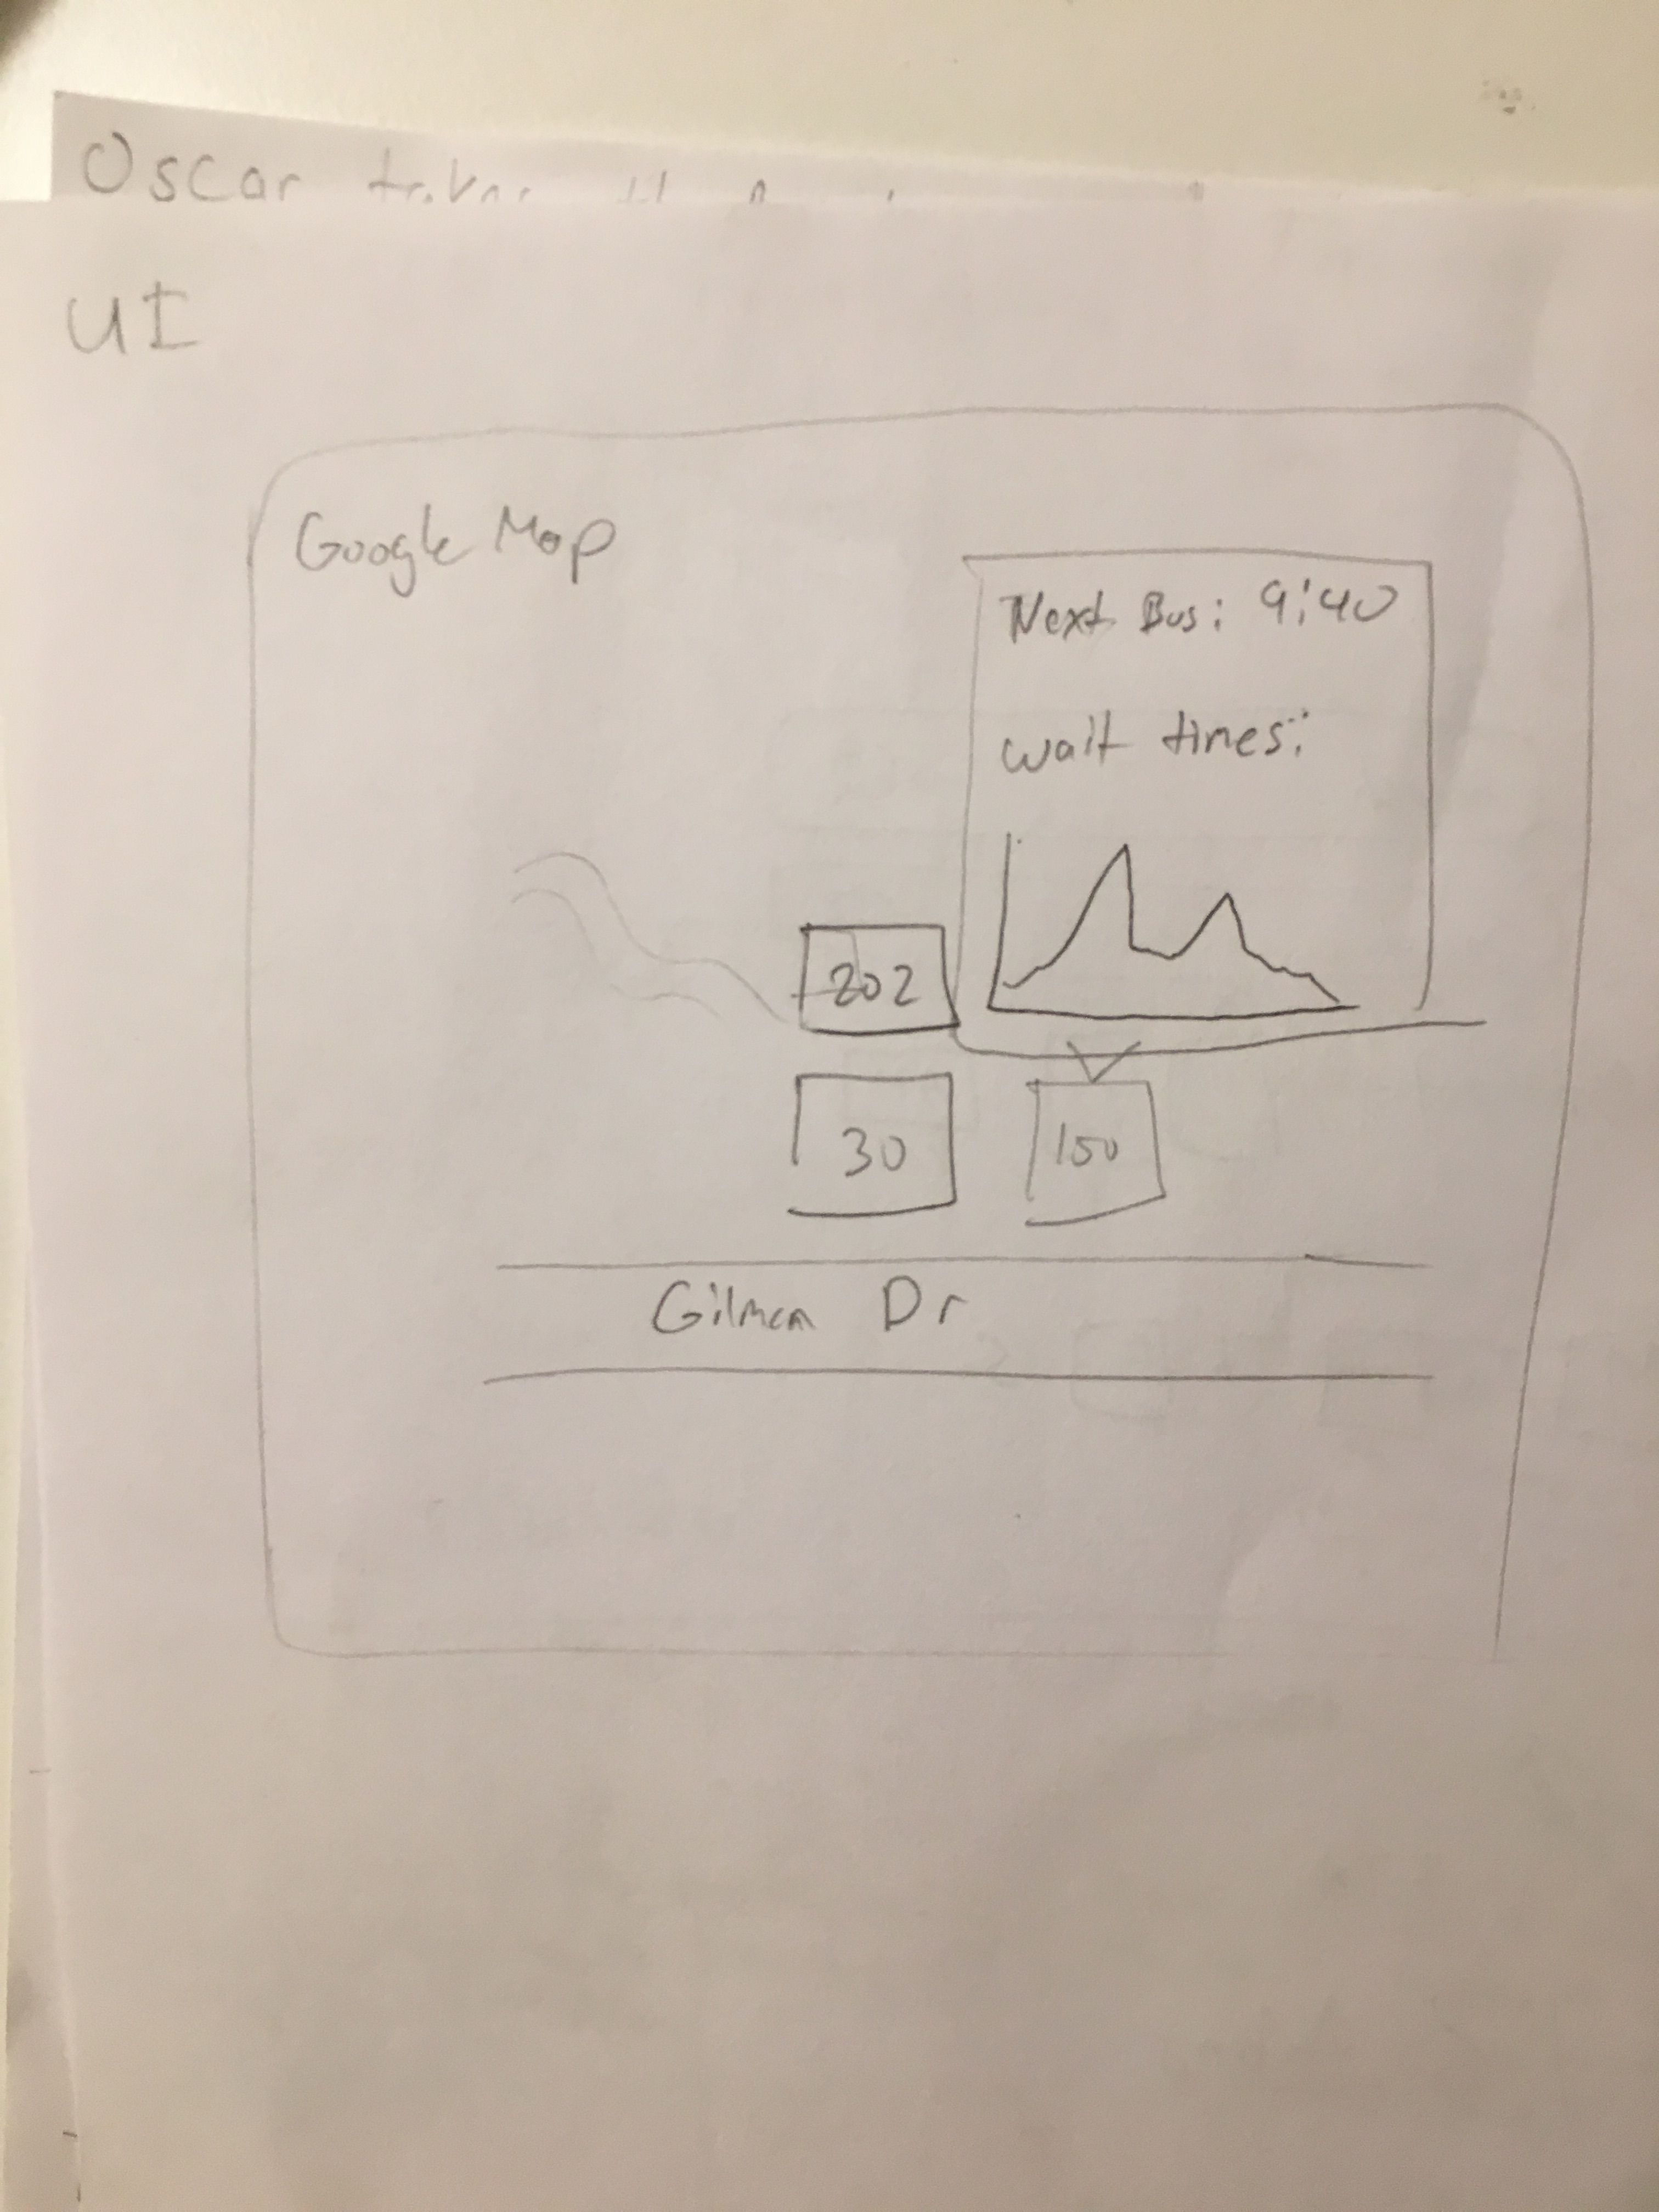 Oscar
UI
Google Map
Next Bus: 9:40
wait times:
202
30
150
Gilman Dr